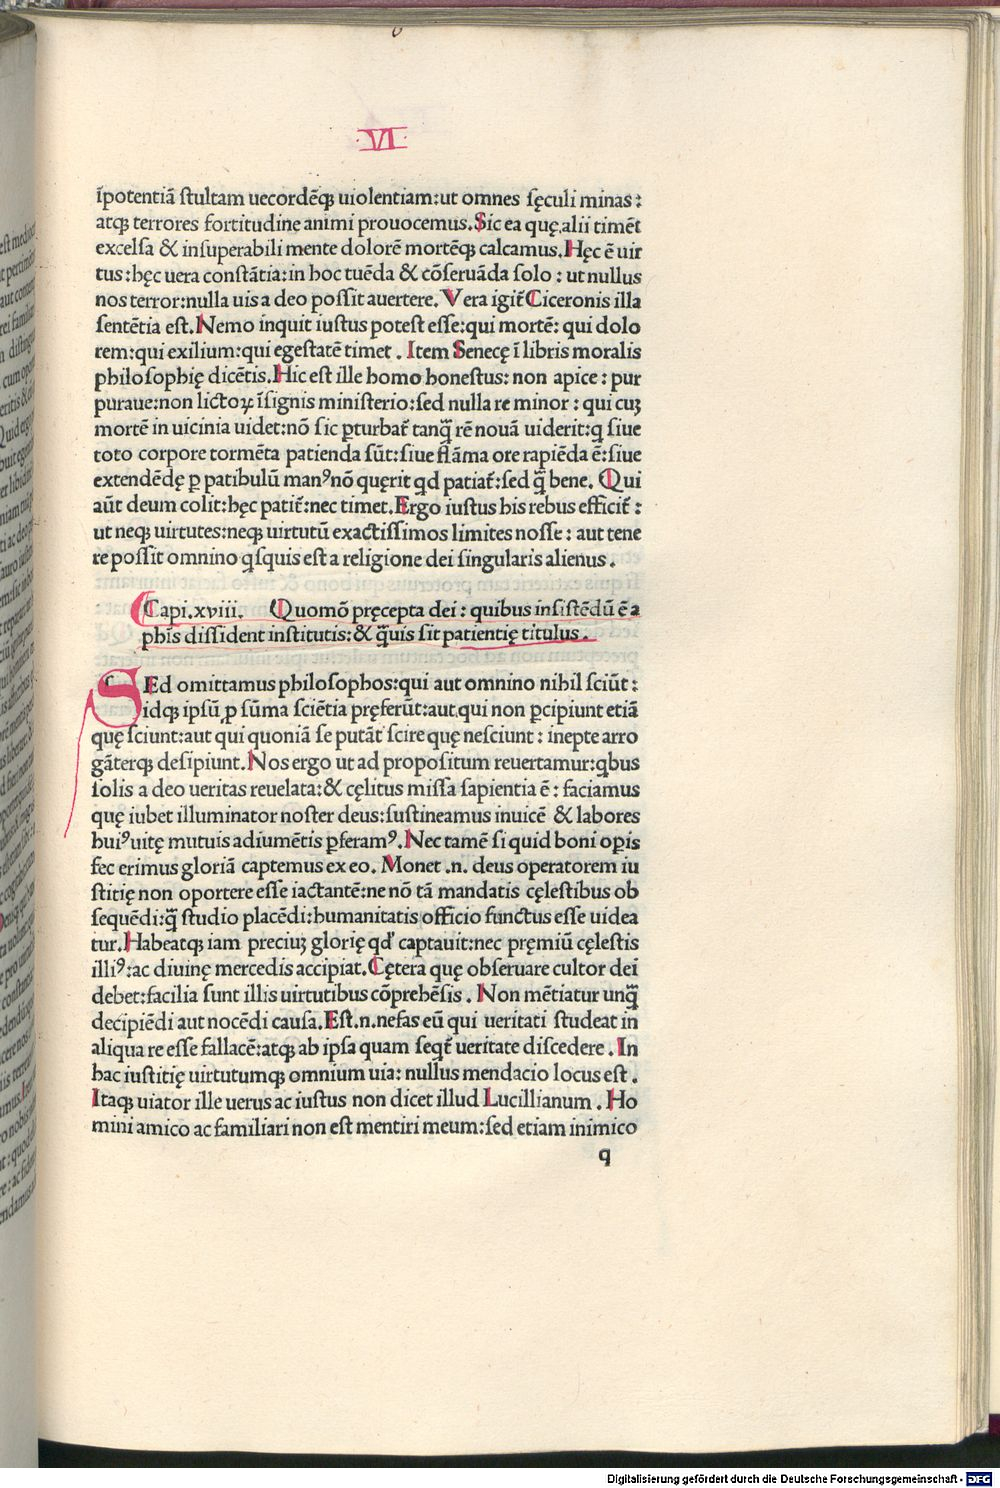 VI
ĩpotentiã ſtultam uecordẽqꝫ uiolentiam:ut omnes ſęculi minas:
atqꝫ terrores fortitudine animi prouocemus.Sic ea quę.alii timẽt
excelſa & inſuperabili mente dolorẽ mortẽqꝫ calcamus.Hęc ẽ uir
tus:hęc uera conſtãtia:in hoc tuẽda & cõſeruãda ſolo : ut nullus
nos terror:nulla uis a deo poſſit auertere. Vera igit̃ Ciceronis illa
ſentẽtia eſt.Nemo inquit iuſtus poteſt eſſe:qui mortẽ: qui dolo
rem:qui exilium:qui egeſtatẽ timet . Item Senecę ĩ libris moralis
philoſophię dicẽtis.Hic eſt ille homo honeſtus: non apice : pur
puraue:non lictoꝝ ĩſignis miniſterio:ſed nulla re minor : qui cuꝫ
mortẽ in uicinia uidet:nõ ſic ꝑturbat̃ tanq̃ rẽ nouã uiderit:q ſiue
toto corpore tormẽta patienda ſũt:ſiue flãma ore rapiẽda ẽ:ſiue
extendẽdę ꝑ patibulũ manꝰnõ quęrit qd patiat̃:ſed q̃ bene. Qui
aũt deum colit:hęc patit̃:nec timet.Ergo iuſtus his rebus efficit̃ :
ut neqꝫ uirtutes:neqꝫ uirtutũ exactiſſimos limites noſſe : aut tene
re poſſit omnino qſquis eſt a religione dei ſingularis alienus .
Capi.xviii. Quomõ pręcepta dei : quibus inſiſtẽdũ ẽ a
phĩs diſſident inſtitutis:& q̃uis ſit patientię titulus .
SEd omittamus philoſophos:qui aut omnino nihil ſciũt :
idqꝫ ipſũ ꝓ ſũma ſciẽtia pręferũt:aut qui non ꝑcipiunt etiã
quę ſciunt:aut qui quoniã ſe putãt ſcire quę neſciunt : inepte arro
gãterqꝫ deſipiunt.Nos ergo ut ad propoſitum reuertamur:qbus
ſolis a deo ueritas reuelata:& cęlitus miſſa ſapientia ẽ : faciamus
quę iubet illuminator noſter deus:ſuſtineamus inuicẽ & labores
huiꝰuitę mutuis adiumẽtis ꝑferamꝰ.Nec tamẽ ſi quid boni opis
fec erimus gloriã captemus ex eo. Monet .n. deus operatorem iu
ſtitię non oportere eſſe iactantẽ:ne nõ tã mandatis cęleſtibus ob
ſequẽdi:q̃ ſtudio placẽdi:humanitatis officio functus eſſe uidea
tur.Habeatqꝫ iam preciuꝫ glorię qd' captauit:nec pręmiũ cęleſtis
illiꝰ:ac diuinę mercedis accipiat.Cętera quę obſeruare cultor dei
debet:facilia ſunt illis uirtutibus cõprehẽſis . Non mẽtiatur unq̃
decipiẽdi aut nocẽdi cauſa.Eſt.n.nefas eũ qui ueritati ſtudeat in
aliqua re eſſe fallacẽ:atqꝫ ab ipſa quam ſeqt̃ ueritate diſcedere . In
hac iuſtitię uirtutumqꝫ omnium uia: nullus mendacio locus eſt .
Itaqꝫ uiator ille uerus ac iuſtus non dicet illud Lucillianum . Ho
mini amico ac familiari non eſt mentiri meum:ſed etiam inimico
q
Digitalisierung gefördert durch die Deutsche Forschungsgemeinschaft - DFG